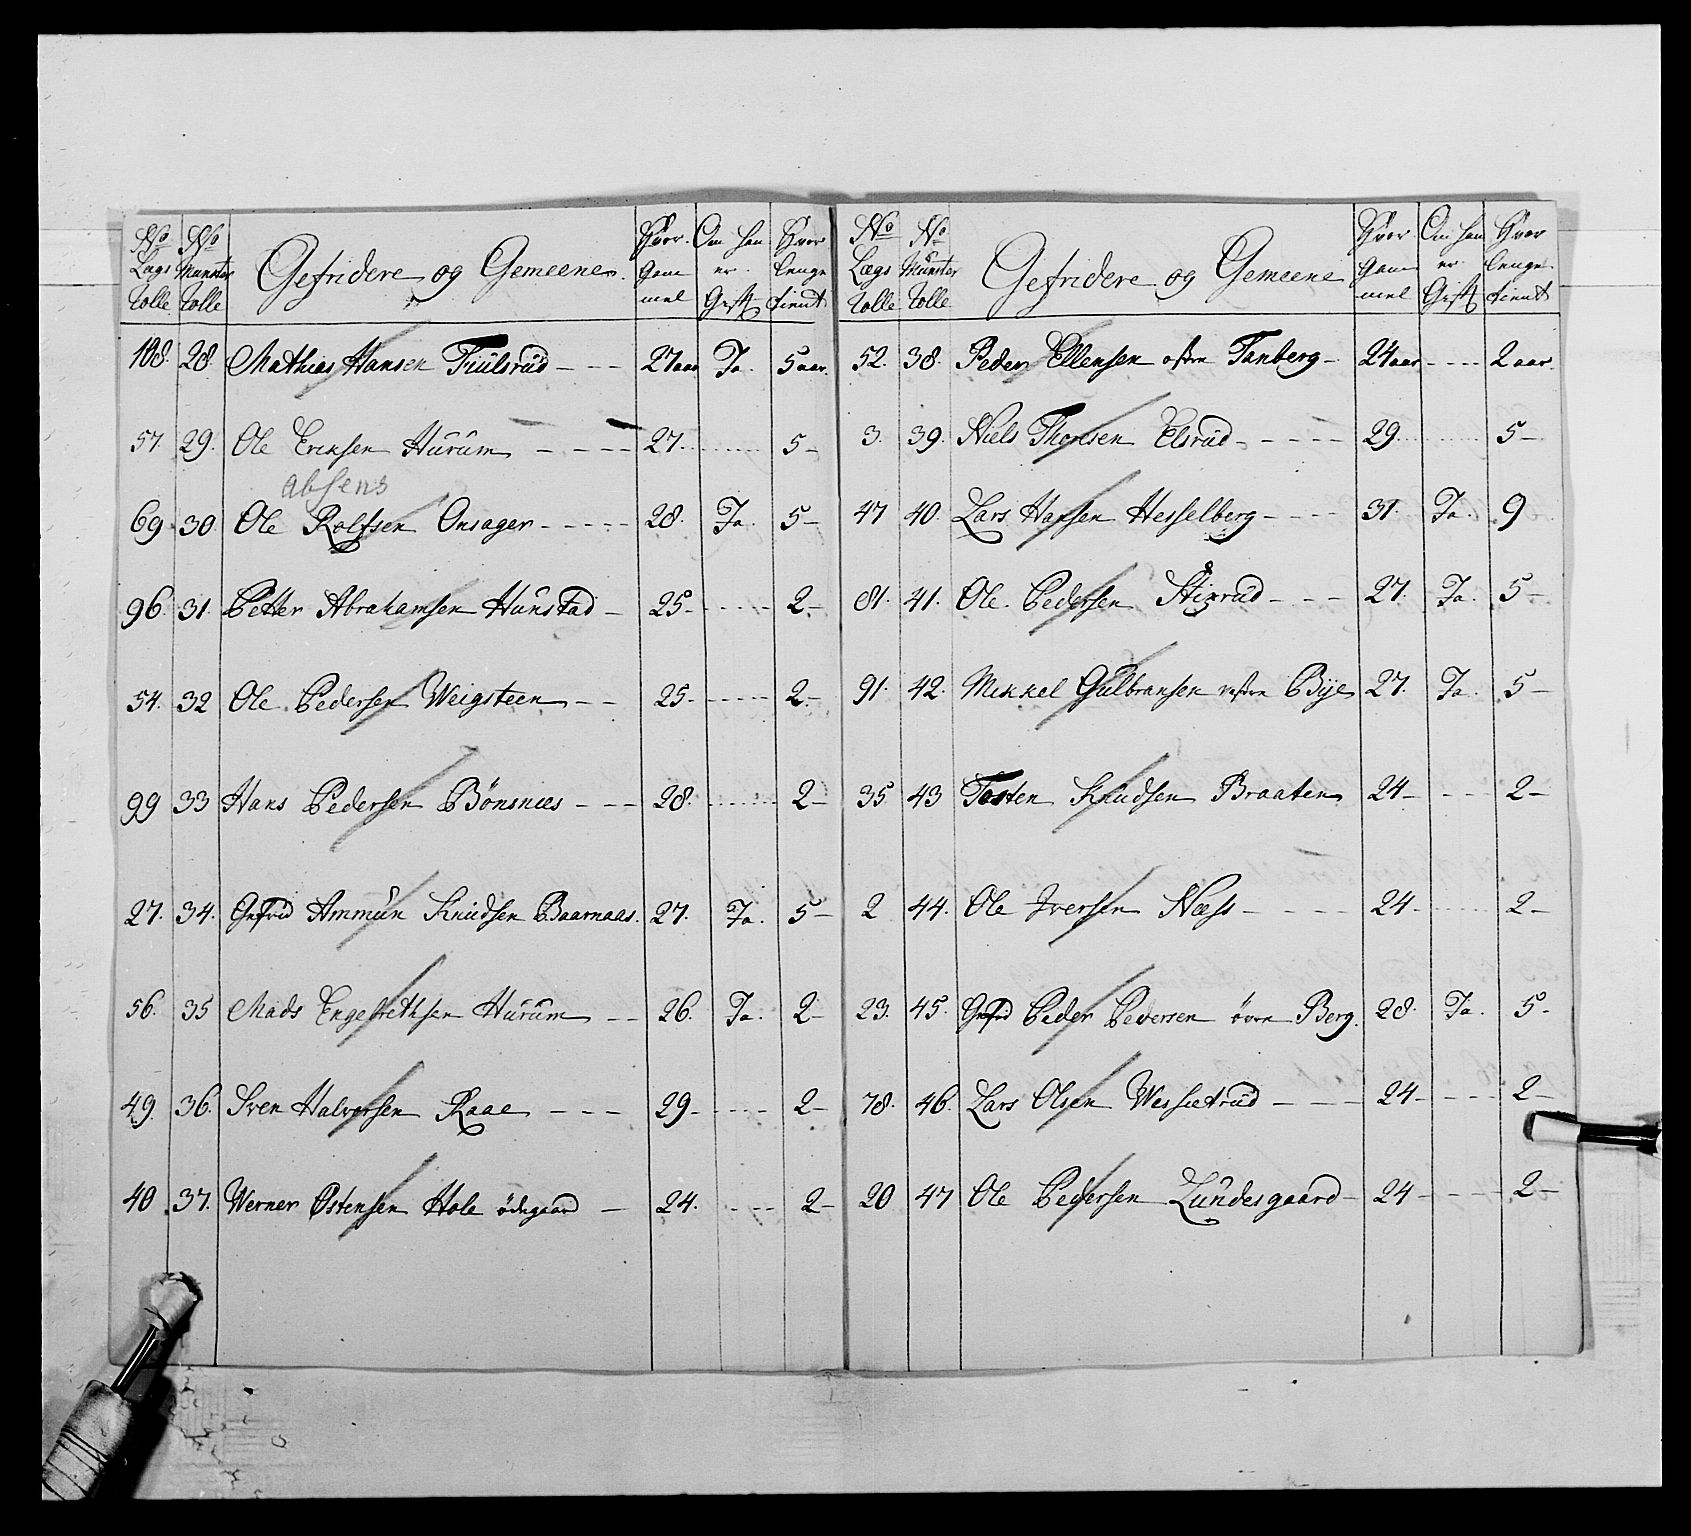 No Lags Rolle | No Munster Rolle | Gefridere og Gemeene | Hvor Gam̄mel | Om han er Gift | Hvor lenge tient
108. 28. Mathias Hansen Trulsrud - - - 27 aar Ja. 5 aar.
57. 29. Ole Eriksen Hurum - - - - 27. 5 -
absens
69. 30. Ole Rolfsen Onsager - - - - 28. Ja. 5 -
96. 31. Petter Abrahamsen Hunstad - 25 - - - - - 2 -
54. 32 Ole Pedersen Weigsteen - - 25 - - - - 2 -
99 33 Hans Pedersen Bönsnæs - - - 28. 2 -
27. 34. Gefrid Ammun Knudsen Baarnaas. 27. Ja. 5 -
56. 35 Mads Engebrethsen Hurum - - 26. Ja. 2 -
49. 36. Sven Halvorsen Raae - - - 29 - - - - 2 -
40 37. Werner Östensen Hole ödegaard - 24. - - - 2 -
No Lægs Rolle | No Munster Rolle | Gefridere og Gemeene | Hvor Gam̄mel | Om han er Gift | Hvor lenge tient
52. 38. Peder Ellensen östre Tanberg - 24 aar - - - - 2 aar.
3. 39. Niels Thoresen Elsrud - - - - - 29. 5 -
47 40. Lars Hansen Hesselberg - - - - 31. Ja. 9
81. 41. Ole Pedersen Stixrud - - - 27. Ja. 5 -
91. 42. Mikkel Gulbransen vestre Bye 27. Ja. 5 -
35 43 Tosten Knudsen Braaten 24 - - - - 2 -
2 44. Ole Iversen Næss - - - - 24 - 2 -
23. 45. Gefrid Peder Pedersen övre Berg. 28. Ja. 5 -
78. 46. Lars Olsen Wessetrud - - - 24 - - - - 2 -
20 47 Ole Pedersen Lundesgaard - 24 - - - - 2 -